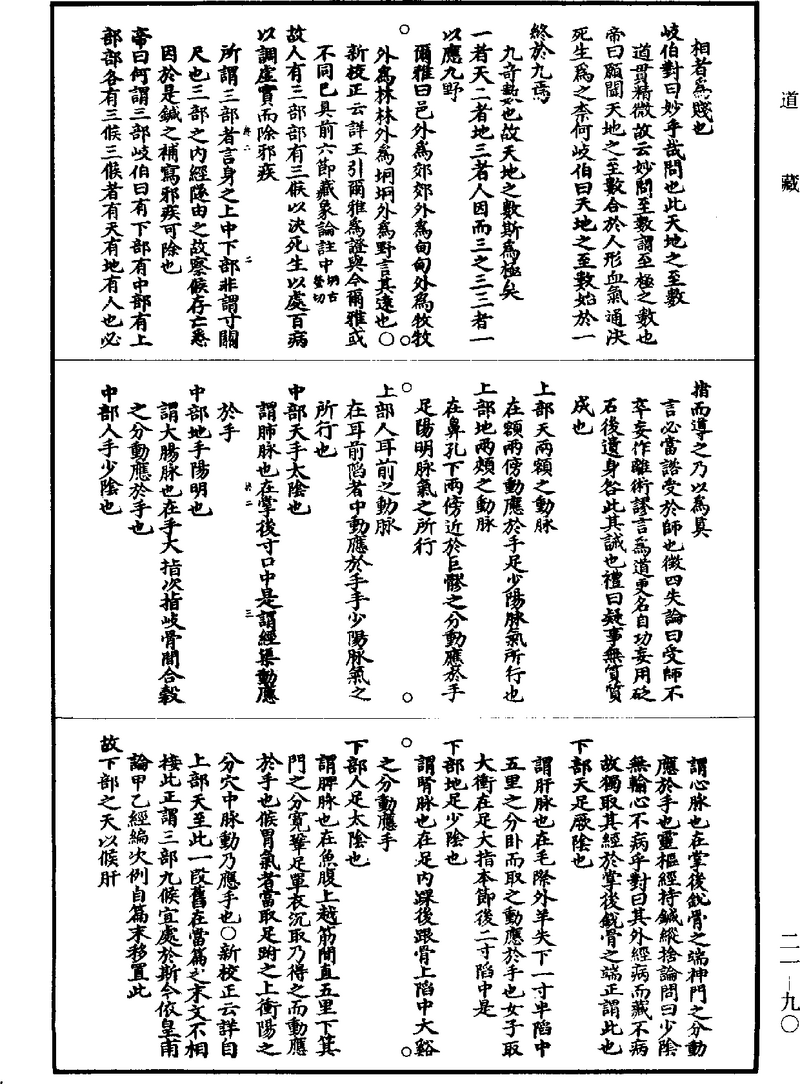 道藏
相者爲賤也
岐伯對曰妙乎哉問也此天地之至數
道貫精微故云妙問至數謂至極之數也
帝曰願聞天地之至數合於人形血氣通決
死生爲之柰何岐伯曰天地之至數始於一
終於九焉
九奇數也故天地之數斯爲極矣
一者天二者地三者人因而三之三三者一
以應九野
爾雅曰邑外爲郊郊外爲甸甸外爲牧牧
外爲林林外爲坰坰外爲野言其遠也○
新校正云詳王引爾雅爲證與今爾雅或
不同已具前六節藏象論註中坰古螢切
故人有三部部有三候以決死生以處百病
以調虛實而除邪疾
所謂三部者言身之上中下部非謂寸關
尺也三部之內經隧由之故察候存亡悉
因於是鍼之補寫邪疾可除也
帝曰何謂三部岐伯曰有下部有中部有上
部部各有三候三候者有天有地有人也必
指而導之乃以爲真
言必當諮受於師也徵四失論曰受師不
卒妄作雜術謬言爲道更名自功妄用砭
石後遺身咎此其誡也禮曰疑事無質質
成也
上部天兩額之動脉
在額兩傍動應於手足少陽脉氣所行也
上部地兩頰之動脉
在鼻孔下兩傍近於巨髎之分動應於手
足陽明脉氣之所行
上部人耳前之動脉
在耳前陷者中動應於手手少陽脉氣之
所行也
中部天手太陰也
謂肺脉也在掌後寸口中是謂經渠動應
於手
中部地手陽明也
謂大腸脉也在手大指次指岐骨間合谷
之分動應於手也
中部人手少陰也
謂心脉也在掌後銳骨之端神門之分動
應於手也靈樞經持鍼縱捨論問曰少陰
無輸心不病乎對曰其外經病而藏不病
故獨取其經於掌後銳骨之端正謂此也
下部天足厥陰也
謂肝脉也在毛際外羊矢下一寸半陷中
五里之分卧而取之動應於手也女子取
大衝在足大指本節後二寸陷中是
下部地足少陰也
謂腎脉也在足內踝後跟骨上陷中大谿
之分動應手
下部人足太陰也
謂脾脉也在魚腹上越筋間直五里下箕
門之分寬鞏足單衣沉取乃得之而動應
於手也候胃氣者當取足跗之上衝陽之
分穴中脉動乃應手也○新校正云詳自
上部天至此一段舊在當篇之末文不相
接此正謂三部九候宜處於斯今依皇甫
論甲乙經編次例自篇末移置此
故下部之天以候肝
二一—九〇